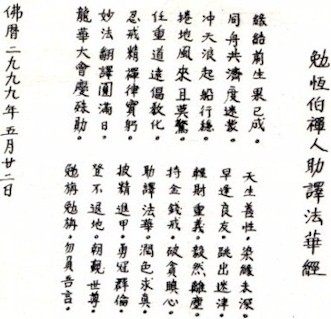 勉恆伯禪人助譯法華經
緣結前生果已成。
同舟共濟度迷眾。
冲天浪起船行穩。
捲地風來且莫驚。
任重道遠倡教化。
忍戒精禪律實躬。
妙法翻譯圓滿日。
龍華大會慶殊勛。
天生善性。染緣未深。
早逢良友。跳出迷津。
輕財重義。毅然離塵。
持金錢戒。破貪瞋心。
助譯法華。潤色求真。
披精進甲。勇冠群倫。
登不退地。朝覲世尊。
勉旃勉旃。勿負吾言。
佛曆二九九九年五月廿二日